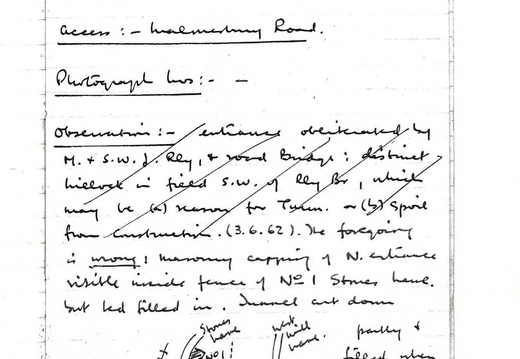 Access :- Malmesbury Road.
Photograph Nos :- -
Observation :- entrance obliterated by
M. & S.W. J. Rly, & road Bridge : distinct
hillock in field S.W. of Rly Br, which
may be (a) reason for Tunn. or (b) spoil
from construction. (3.6.62). The foregoing
is wrong : masonry capping of N. entrance
visible inside fence of No 1 Stones Lane.
but bed filled in. Tunnel cut down
Stones Lane
West Mill Lane.
partly &
No 1
filled when